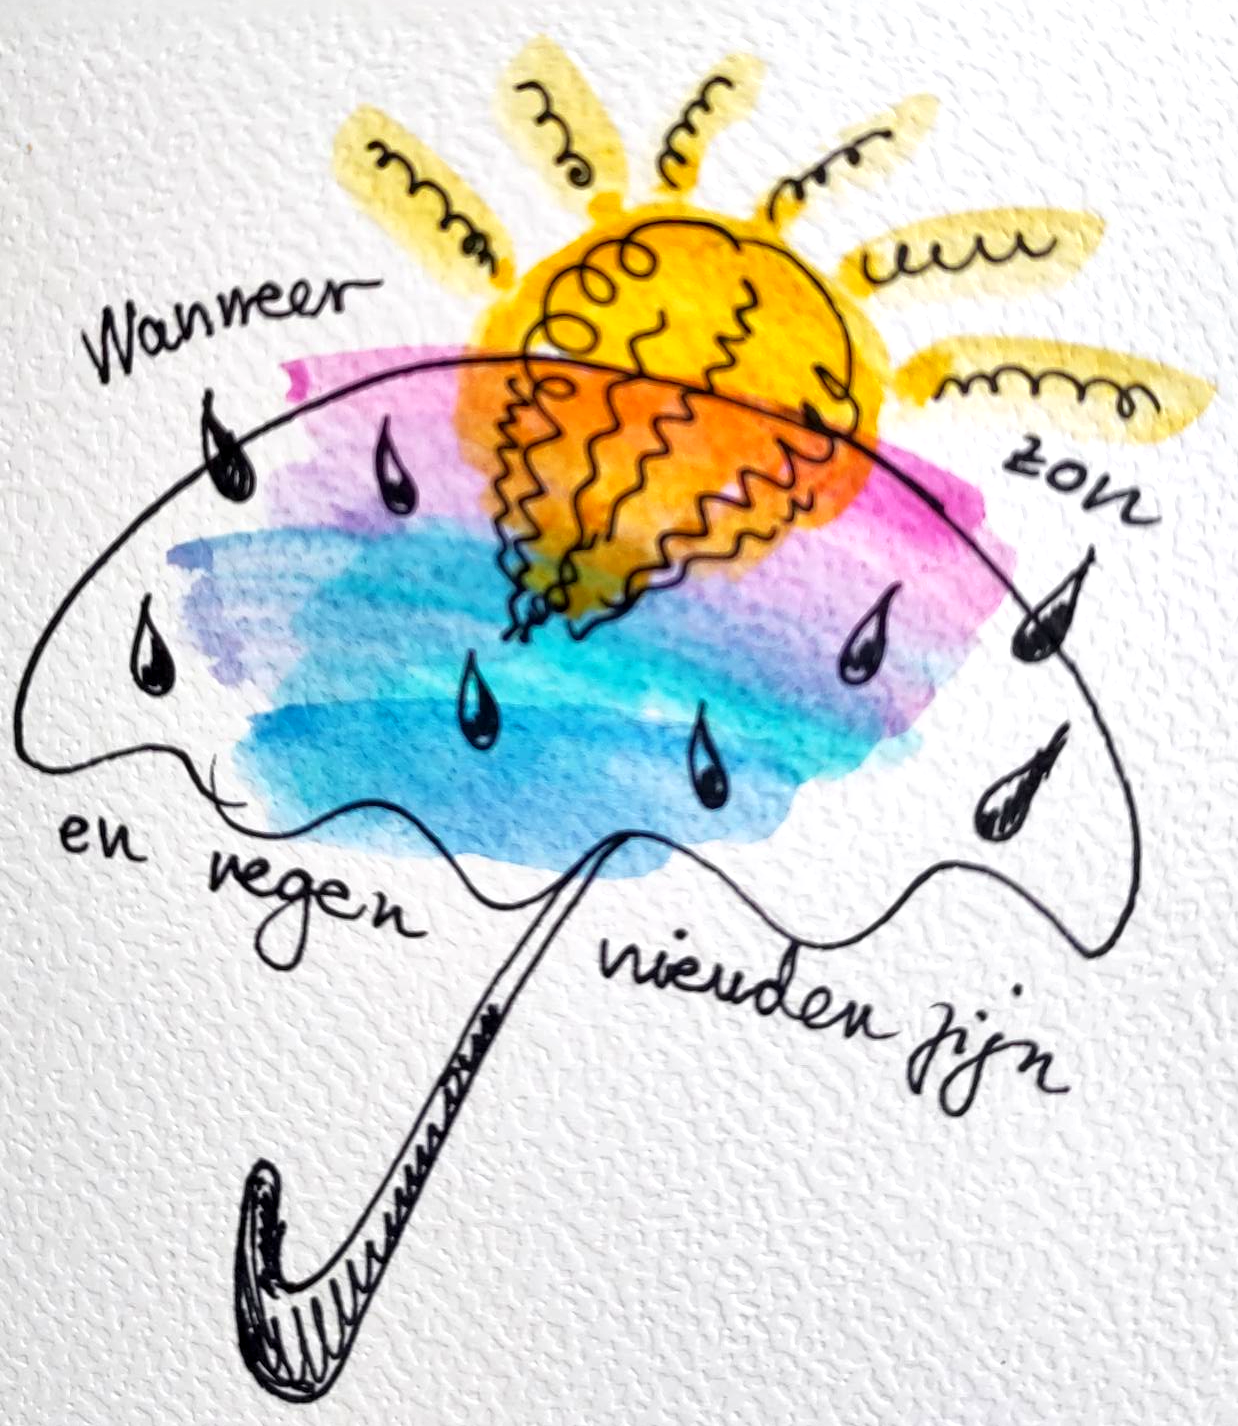 Wanneer
zon
en regen
vrienden zijn